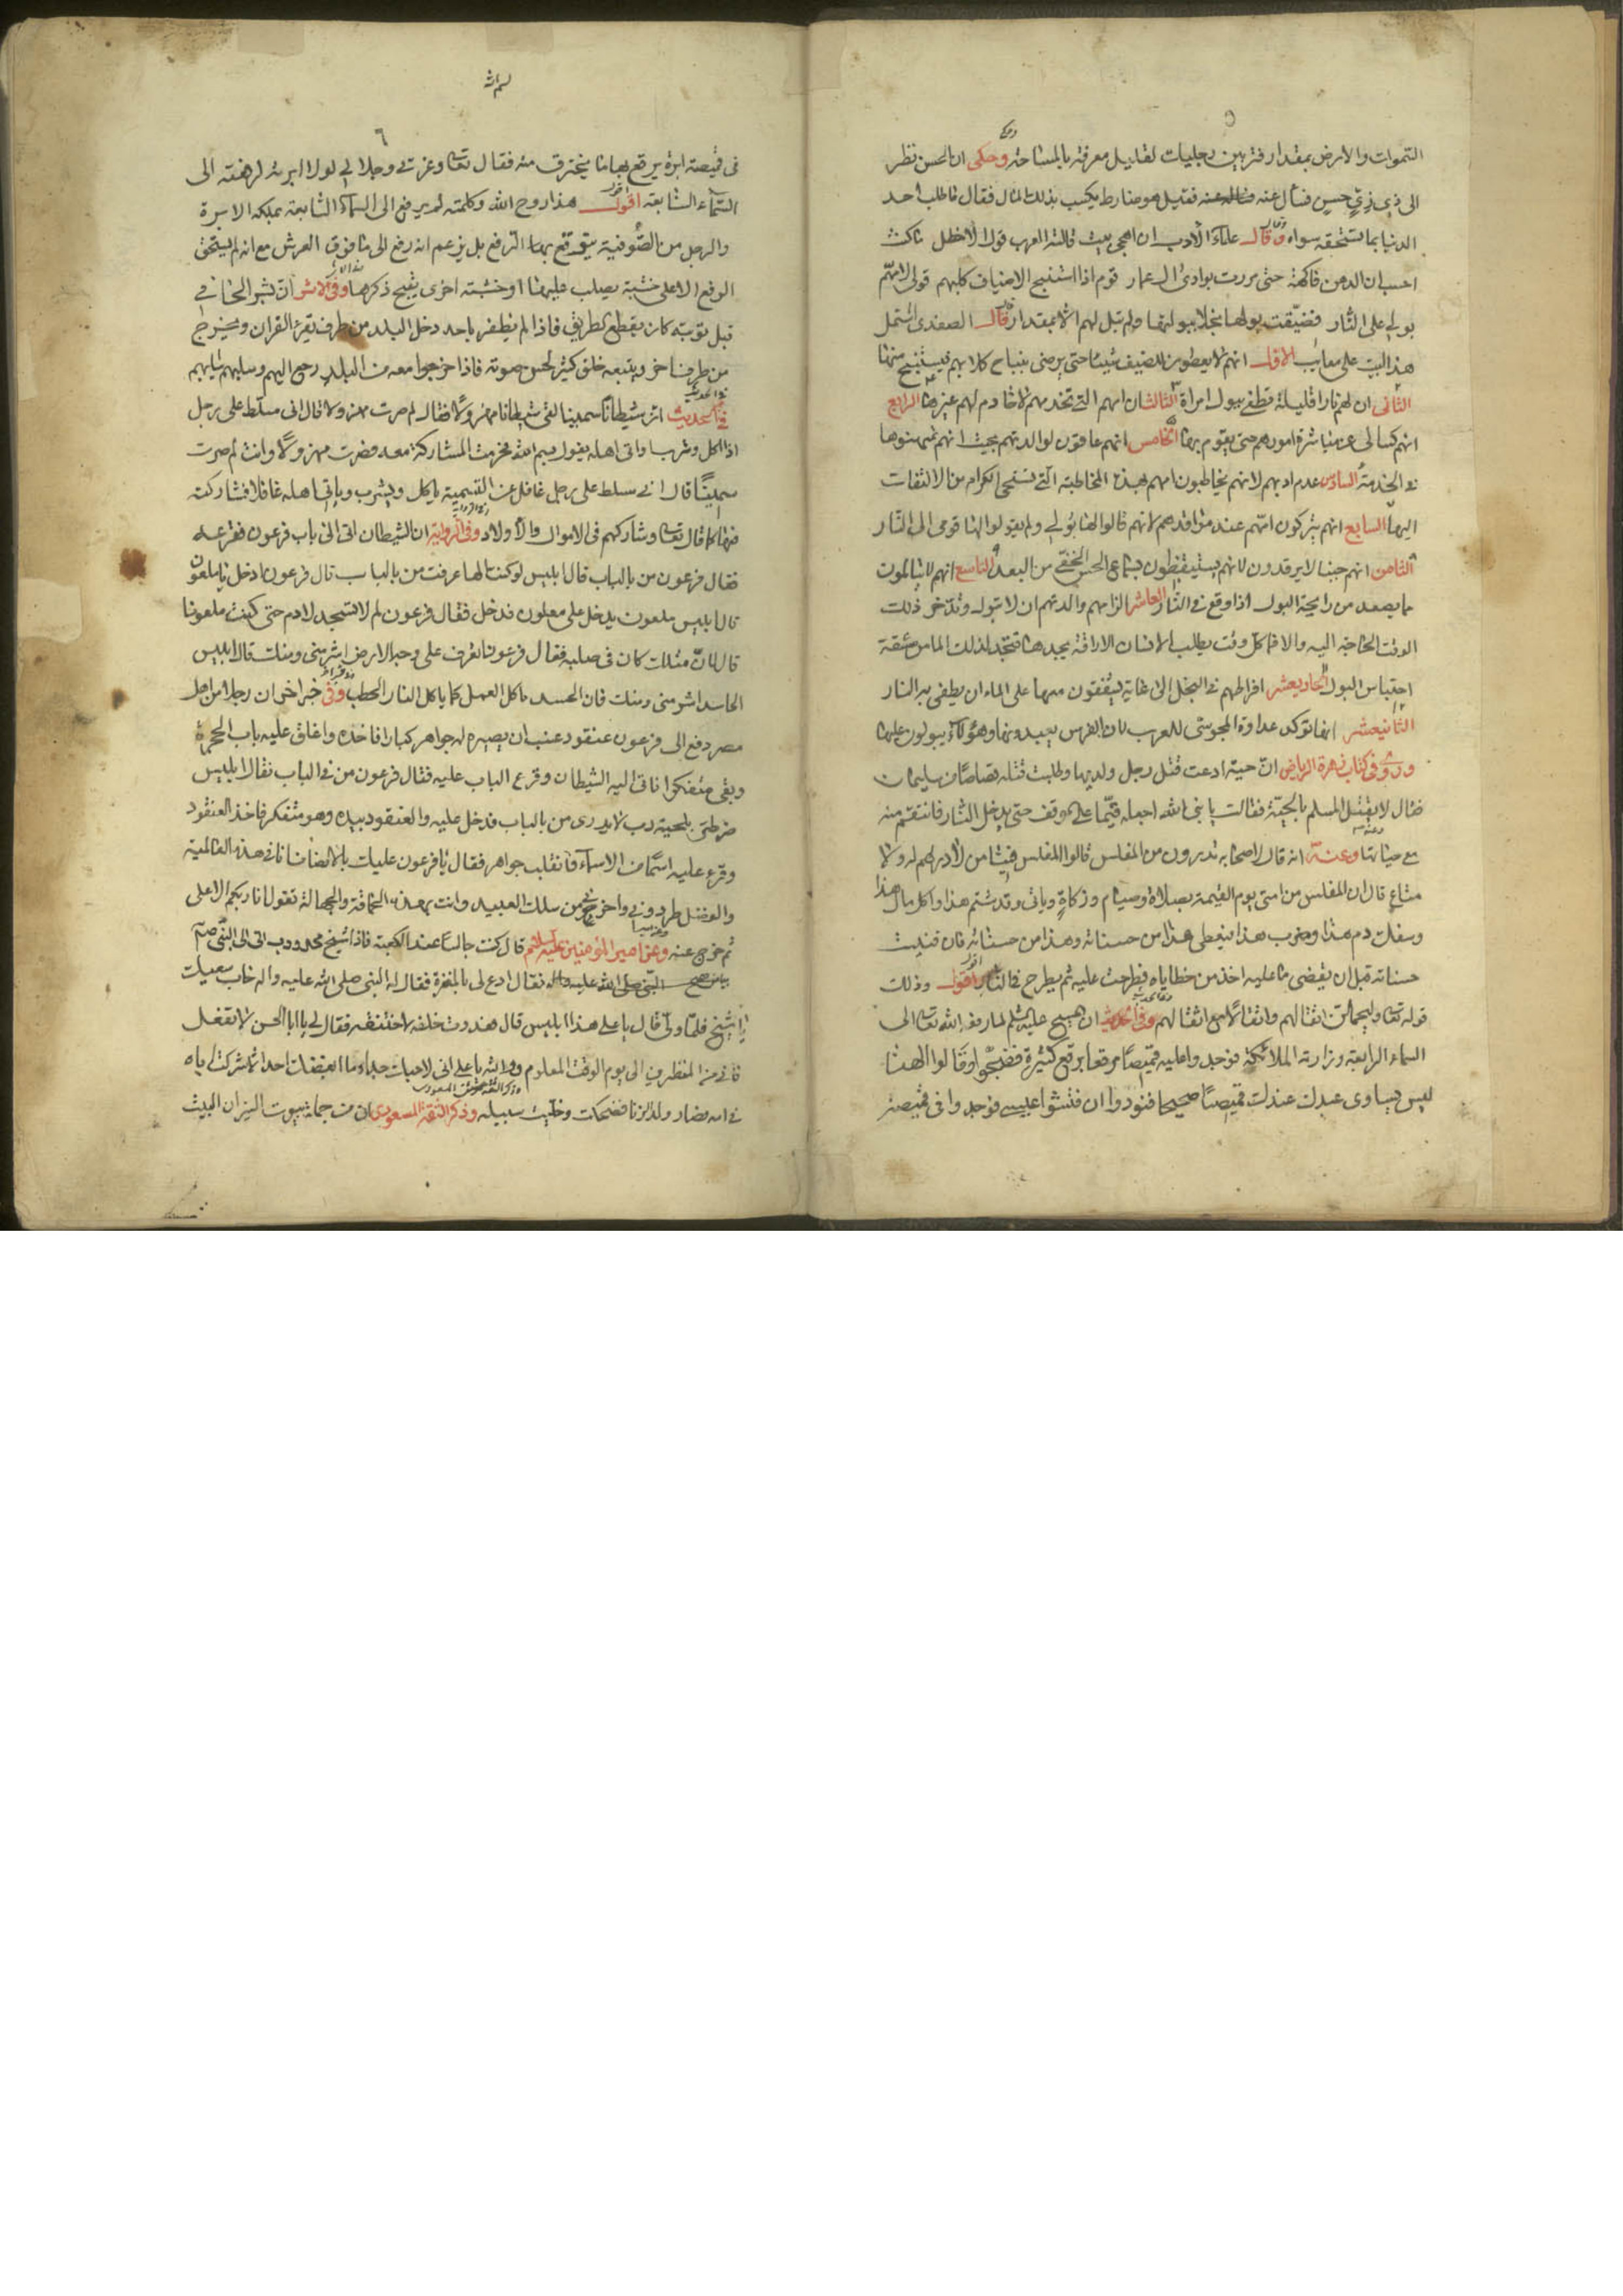 السموات والارض بمقدار فتربين رجليك لقليل معرفته بالمساحة وحكى ان الحسن نظر
الى ذي زي حسن فسأل عنه فقيل هو ضارط يكسب بذلك المال فقال ما طلب احد
الدنيا بما تستحقه سواه وقال علماء الأدب ان اهجى بيت قالته العرب قول الاخطل ما كنت
احسب ان الدهن فاكهة حتى مررت بوادى ال عمار قوم اذا استنبح الاضياف كلبهم قولى لامهم
بولي على النار فضيقت بولها بخلا ببولها ولم تبل لهم الا بمقدار قال الصفدى اشتمل
هذا البيت على معايب الاول انهم لا يعطون للضيف شيئا حتى يرضى بنباح كلابهم فيستنبح منها
الثانى ان لهم نارا قليلة تطفى ببول امراة الثالث ان امهم التى تخدمهم لا خادم لهم غيرها الرابع
انهم كسالى عن مباشرة امورهم حتى يقوم بها الخامس انهم عاقون لوالدتهم بحيث انهم يمتهنوها
فى الخدمة السادس عدم ادبهم لانهم يخاطبون امهم بهذه المخاطبة التى تستحى الكرام من الالتفات
اليها السابع انهم يتركون امهم عند مواقدهم لانهم قالوا لها بولي ولم يقولوا لها قومى الى النار
الثامن انهم جبنا لا يرقدون لانهم يستيقظون بسماع الحس الخفى من البعد التاسع انهم لا يتالمون
ما يصعد من رايحة البول اذا وقع فى النار العاشر الزامهم والدتهم ان لا تبول وتدخر ذلك
لوقت الحاجة اليه والا فما كل وقت يطلب الانسان الاراقة يجدها فتجد لذلك الما من مشقة
احتباس البول الحاديعشر افراطهم فى البخل الى غاية يشفقون معها على الماء ان يطفى به النار
الثانيعشر انها توكد عداوة المجوس للعرب لان الفرس يعبدونها وهؤلاء يبولون عليها
وروى فى كتاب زهرة الرياض ان حية ادعت قتل رجل ولديها وطلبت قتله قصاصا من سليمان
فقال لا يقتل المسلم بالحية فقالت يا نبى الله اجعله قيما على موقف حتى يدخل النار فانتقم منه
مع حياتها وعنه انه قال لاصحابه تدرون من المفلس قالوا المفلس فينا من لا درهم له ولا
متاع قال ان المفلس من امتى يوم القيمة بصلاة وصيام وزكاة وياتى وقد شتم هذا واكل مال هذا
وسفك دم هذا وضرب هذا فيعطى هذا من حسناته وهذا من حسناته فان فنيت
حسناته قبل ان يقضى ما عليه اخذ من خطاياه فطرحت عليه ثم يطرح فى النار اقول وذلك
قوله تعالى وليحملن اثقالهم واثقالا مع اثقالهم وفى الحديث ان المسيح عليه السلم لما رفعه الله تعالى الى
السماء الرابعة وزارته الملائكة فوجدوا عليه قميصا مرقعا برقع كثيرة فضجوا وقالوا الهنا
ليس يساوى عبدك عندك قميصا صحيحا فنودوا ان فتشوا عيسى فوجدوا فى قميصه
٦
فى قميصه ابرة يرقع بها ما ينخرق منه فقال تعالى وعزتى وجلالي لولا الابرة لرفعته الى
السماء السابعة اقول هذا روح الله وكلمته لم يرفع الى السماء السابعة بملكه الابرة
والرجل من الصوفية يتوقع بها الترفع بل يزعم انه رفع الى ما فوق العرش مع انه لم يستحق
الرفع الا على خشبة يصلب عليها او خشبة اخرى يقبح ذكرها وفى الاثر ان بشر الحافى
قبل توبته كان يقطع الطريق فاذا لم يظفر باحد دخل البلد من طرف يقرء القران ويخرج
من طرف اخر ويتبعه خلق كثير لحسن صوته فاذا خرجوا معه من البلد رجع اليهم وسلبهم ثيابهم
فى الحديث ان شيطانا سمينا لقى شيطانا مهزولا فقال لم صرت مهزولا قال انى مسلط على رجل
اذا اكل وشرب واتى اهله يقول بسم الله فحرمت المشاركة معه فصرت مهزولا وانت لم صرت
سمينا قال انى مسلط على رجل غافل عن التسمية ياكل ويشرب وياتى اهله غافلا فشاركته
فيها كما قال تعالى وشاركهم فى الاموال والاولاد وفى الرواية ان الشيطان اتى الى باب فرعون فقرعه
فقال فرعون من بالباب قال ابليس لو كنت الها عرفت من بالباب قال فرعون ادخل يا ملعون
قال ابليس ملعون يدخل على ملعون فدخل فقال فرعون لم لا تسجد لادم حتى كنت ملعونا
قال لان مثلك كان فى صلبه فقال فرعون اتعرف على وجه الارض اشر منى ومنك قال ابليس
الحاسد اشر منى ومنك فان الحسد ياكل العمل كما ياكل النار الحطب وفى خبر اخر ان رجلا من اهل
مصر دفع الى فرعون عنقود عنب ان يصيره له جواهر كبارا فاخذه واغلق عليه باب الحجرة
وبقى متفكرا فاتى اليه الشيطان وقرع الباب عليه فقال فرعون من فى الباب فقال ابليس
ضرطتى بلحية رب لا يدرى من بالباب فدخل عليه والعنقود بيده وهو متفكر فاخذ العنقود
وقرء عليه اسما من الاسماء فانقلب جواهر فقال يا فرعون عليك بالانصاف انا فى هذه العالمية
والفضل طردونى واخرجونى من سلك العبيد وانت بهذه الحماقة والجهالة تقول انا ربكم الاعلى
ثم خرج عنه وعن امير المؤمنين عليه السلم قال كنت جالسا عند الكعبة فاذا شيخ محدودب اتى الى النبى صلعم
فقال ادع لى بالمغفرة فقال له النبى صلى الله عليه واله خاب سعيك
يا شيخ فلما ولى قال يا على هذا ابليس قال فعدوت خلفه لاخنقه فقال لي يا ابا الحسن لا تفعل
فانى من المنظرين الى يوم الوقت المعلوم ووالله يا على انى لاحبك جدا وما ابغضك احد الا شركت اباه
فى امه فصار ولد الزنا فضحكت وخليت سبيله وذكر الثقة المسعودى ان من جملة بيوت النيران البيت